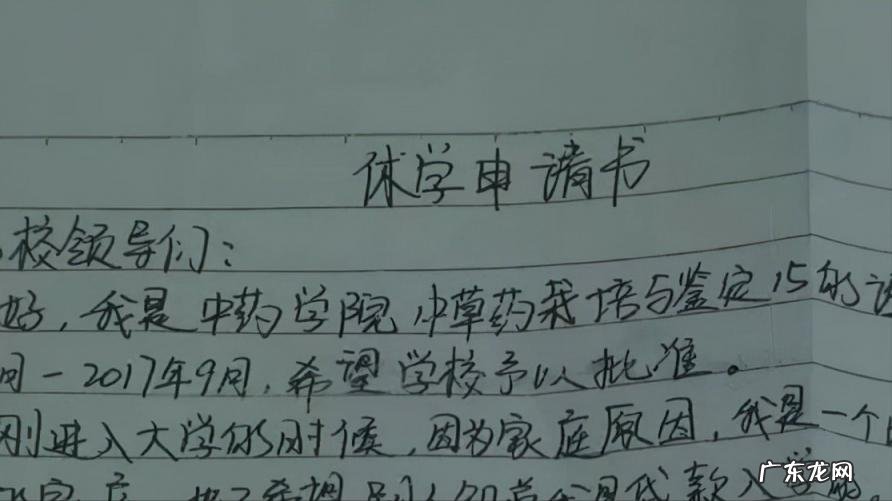 休学申请书
校领导们：
好，我是中药学院中草药栽培与鉴定15的
月－2017年9月，希望学校予以批准。
刚进入大学的时候，因为家庭原因，我是一个
款入学
广东龙网